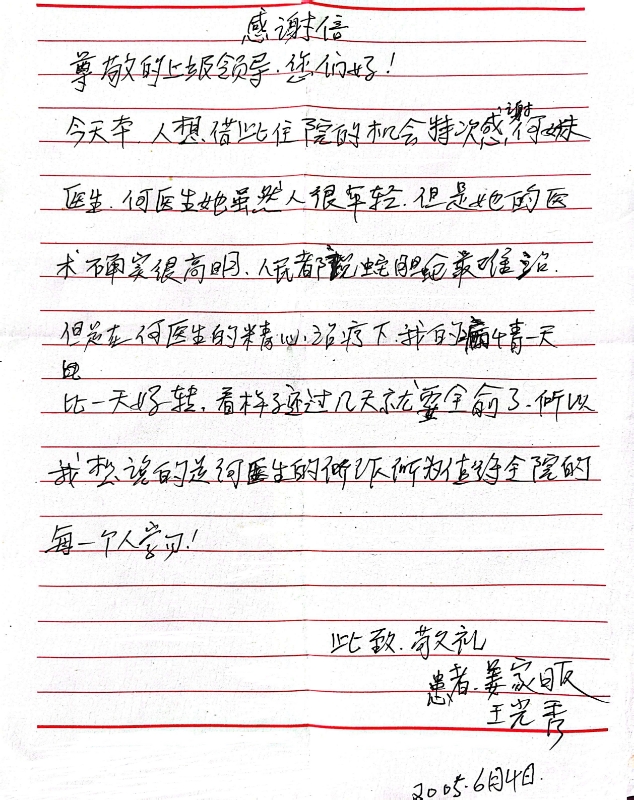 感谢信
尊敬的上级领导.您们好!
今天本.人想借此住院的机会特次感谢何妹
医生.何医生她虽然人很年轻.但是她的医
术确实很高明.人民都说蛇胆疮最难治.
但是在何医生的精心治疗下.我的病情一天
比一天好转.看样子还过几天就要全俞了.所以
我想说的是何医生的所作所为值得全院的
每一个人学习!
此致.敬礼
患者.姜家
王光秀
2005.6月4日.